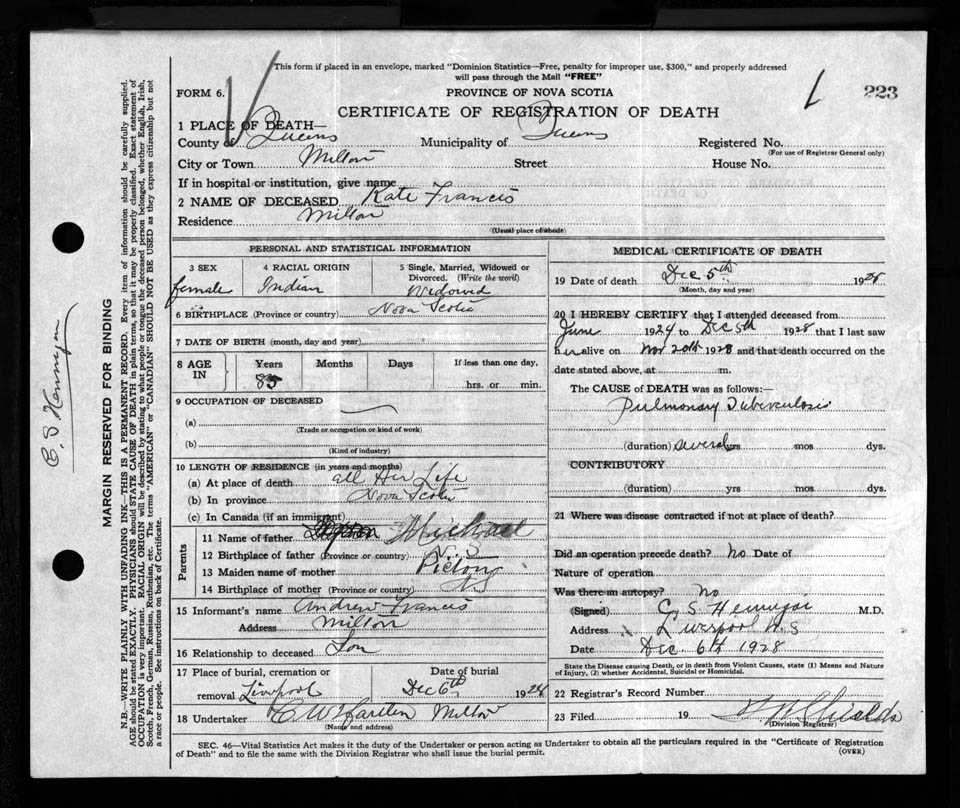 This form if placed in an envelope, marked "Dominion Statistics—Free, penalty for improper use, $300," and properly addressed
will pass through the Mail "FREE"
FORM 6.
PROVINCE OF NOVA SCOTIA
223
CERTIFICATE OF REGISTRATION OF DEATH
1 PLACE OF DEATH—
County of Queens Municipality of Queens Registered No.
(For use of Registrar General only)
City or Town Milton Street House No.
If in hospital or institution, give name
2 NAME OF DECEASED Kate Francis
Residence Milton
(Usual place of abode)
PERSONAL AND STATISTICAL INFORMATION
3 SEX 4 RACIAL ORIGIN 5 Single, Married, Widowed or
Divorced. (Write the word)
female Indian Widowed
6 BIRTHPLACE (Province or country) Nova Scotia
7 DATE OF BIRTH (month, day and year)
8 AGE IN Years Months Days If less than one day,
85 hrs. or min.
9 OCCUPATION OF DECEASED
(a)
(Trade or occupation or kind of work)
(b)
(Kind of industry)
10 LENGTH OF RESIDENCE (in years and months)
(a) At place of death all Her Life
(b) In province Nova Scotia
(c) In Canada (if an immigrant)
Parents
11 Name of father Michael
12 Birthplace of father (Province or country) N. S
13 Maiden name of mother Pictou
14 Birthplace of mother (Province or country) NS
15 Informant's name Andrew Francis
Address Milton
16 Relationship to deceased Son
17 Place of burial, cremation or Date of burial
removal Liverpool Dec 6th 1928
18 Undertaker Milton
(Name and address)
MEDICAL CERTIFICATE OF DEATH
19 Date of death Dec 5th 1928
(Month, day and year)
20 I HEREBY CERTIFY that I attended deceased from
June 1924 to Dec 5th 1928 that I last saw
her alive on Nov 20th 1928 and that death occurred on the
date stated above, at m.
The CAUSE of DEATH was as follows:—
Pulmonary Tuberculosis
(duration) several yrs mos dys.
CONTRIBUTORY
(duration) yrs mos dys.
21 Where was disease contracted if not at place of death?
Did an operation precede death? no Date of
Nature of operation
Was there an autopsy? no
(Signed) C. S. Hennigar M.D.
Address Liverpool N.S
Date Dec. 6th 1928
State the Disease causing Death, or in death from Violent Causes, state (1) Means and Nature
of Injury, (2) whether Accidental, Suicidal or Homicidal.
22 Registrar's Record Number
23 Filed 19
(Division Registrar)
SEC. 46—Vital Statistics Act makes it the duty of the Undertaker or person acting as Undertaker to obtain all the particulars required in the "Certificate of Registration
of Death" and to file the same with the Division Registrar who shall issue the burial permit.
(OVER)
MARGIN RESERVED FOR BINDING
N.B.—WRITE PLAINLY WITH UNFADING INK—THIS IS A PERMANENT RECORD. Every item of information should be carefully supplied.
AGE should be stated EXACTLY. PHYSICIANS should STATE CAUSE OF DEATH in plain terms, so that it may be properly classified. Exact statement of
OCCUPATION is very important. RACIAL ORIGIN will be described by stating to what people or tongue the deceased person belonged, whether English, Irish,
Scotch, French, German, Russian, Ruthenian, etc. The terms "AMERICAN" or "CANADIAN" SHOULD NOT BE USED as they express citizenship but not
a race or people. See instructions on back of Certificate.
C. S Hennigar